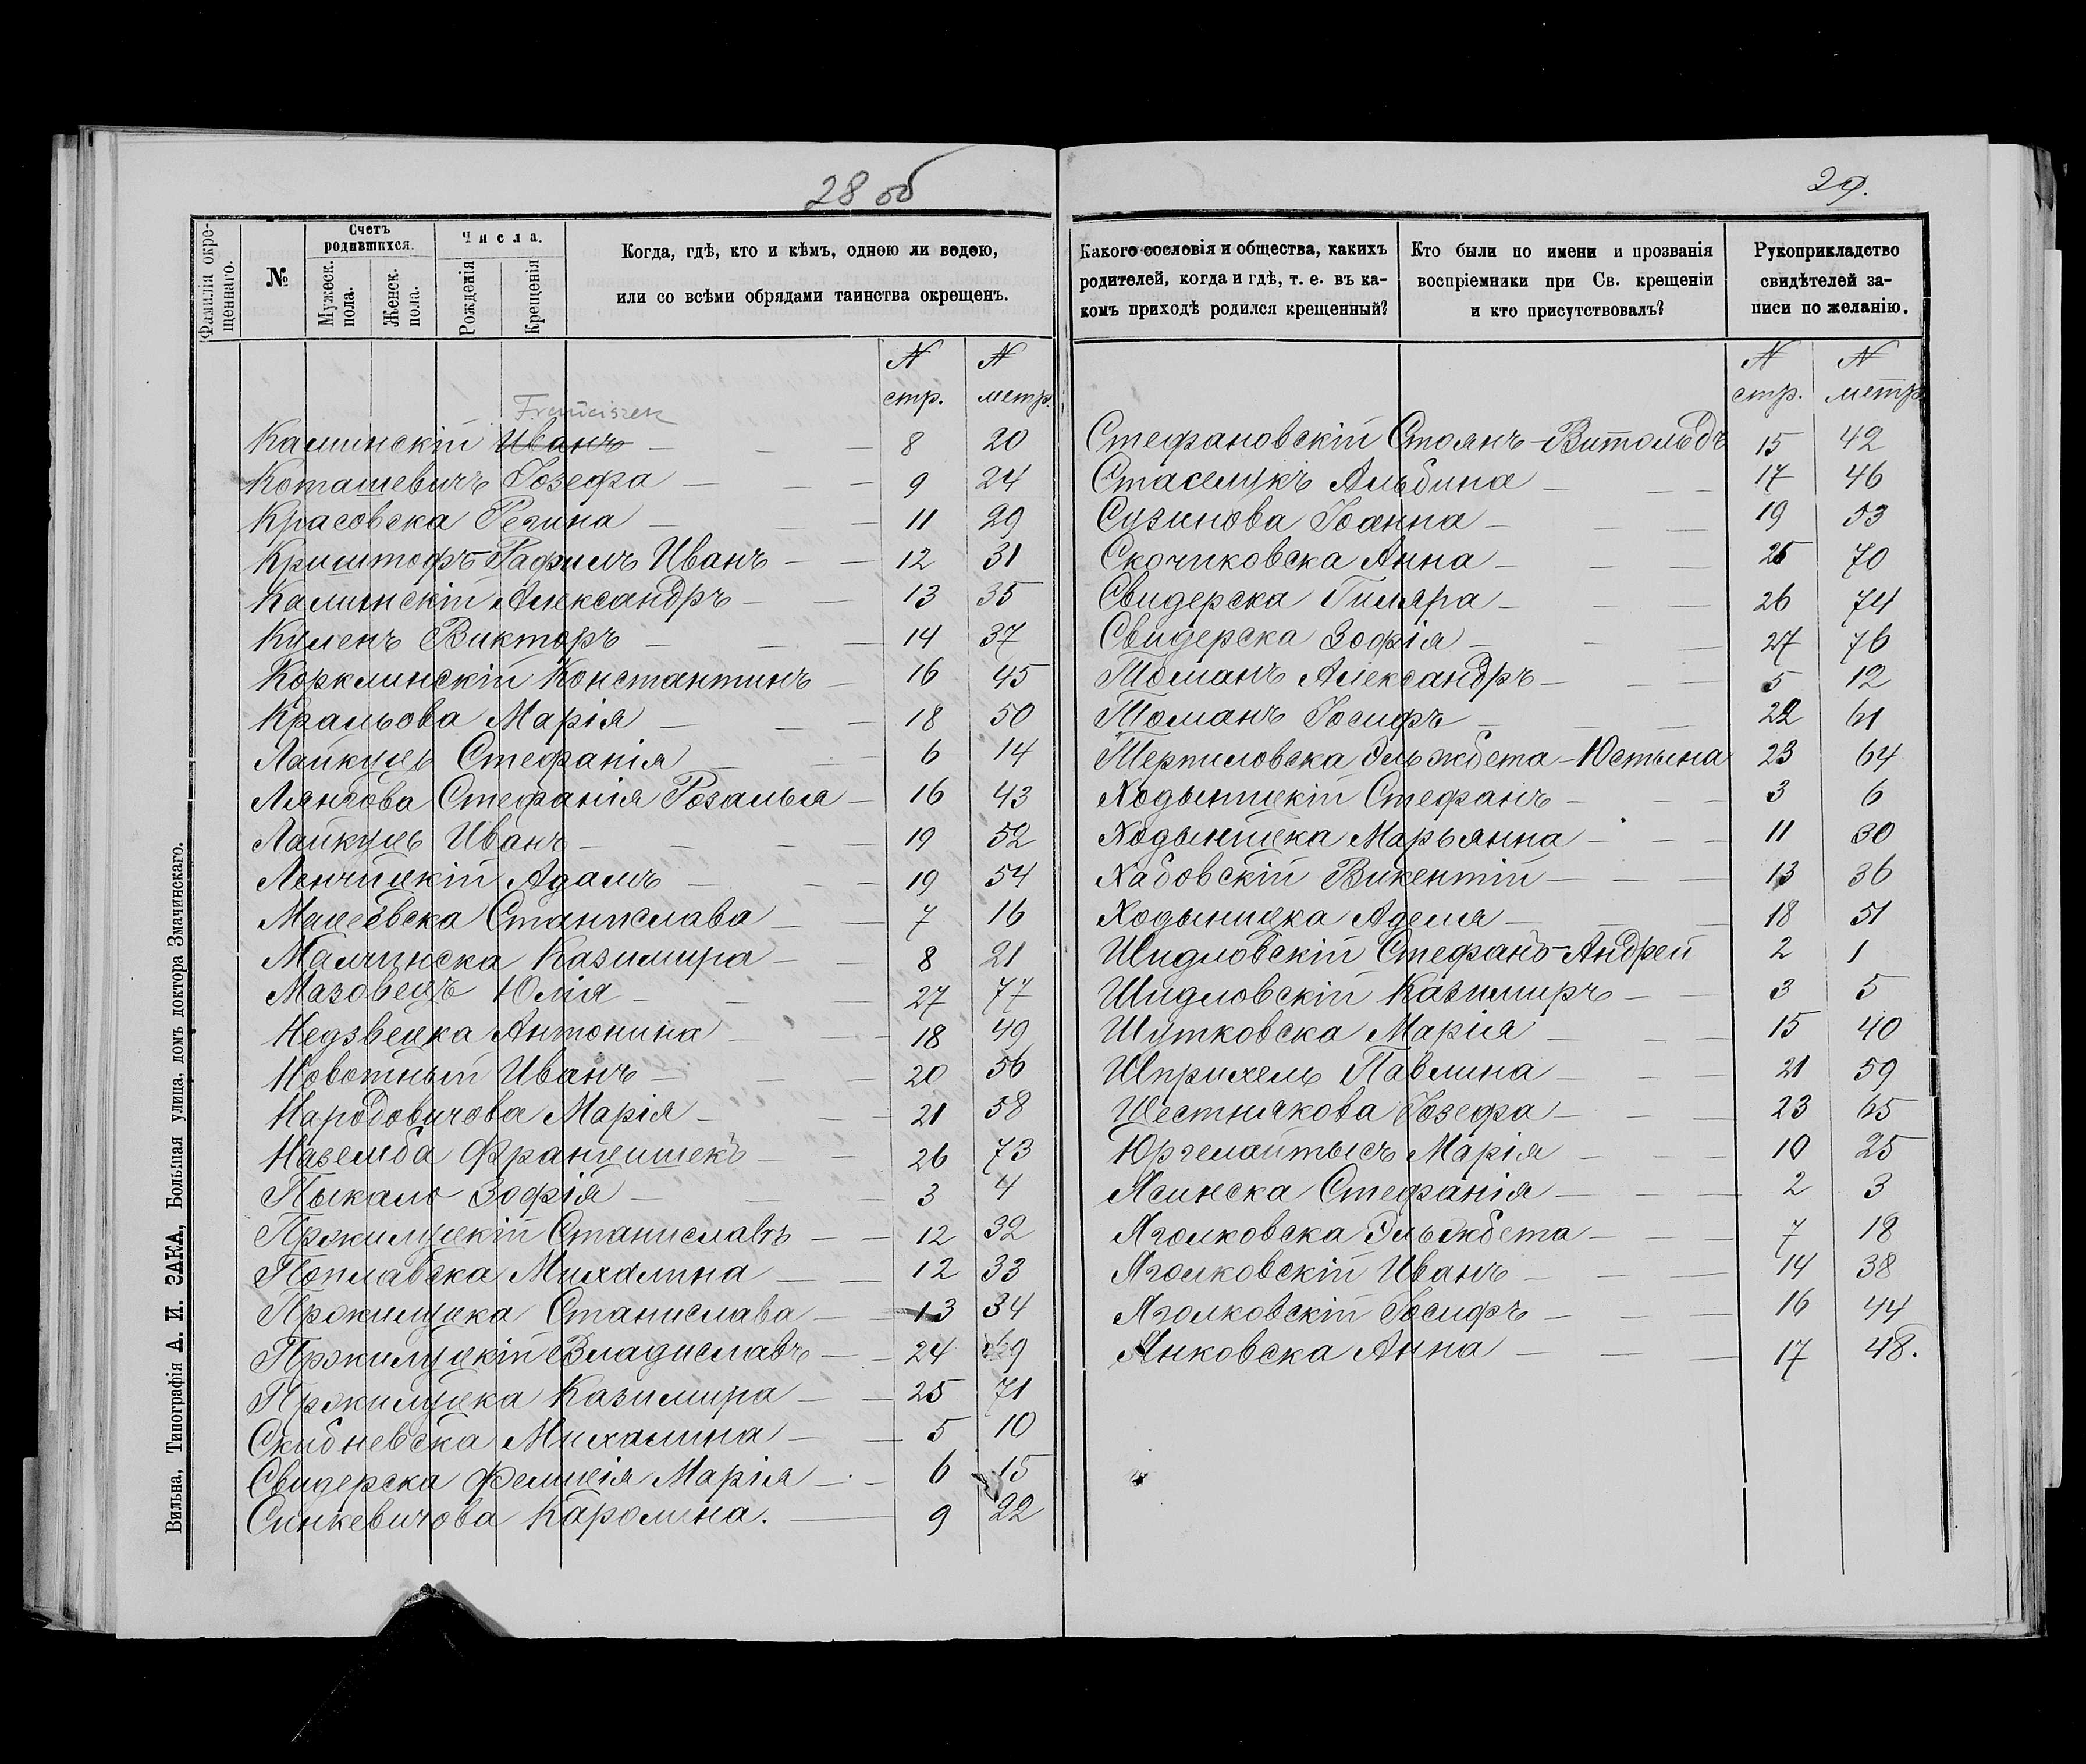 28 об
Фамилія окрещеннаго.
№
Счетъ родившихся.
Мужеск. пола.
Женск. пола.
Числа.
Рожденія
Крещенія
Когда, гдѣ, кто и кѣмъ, одною ли водою,
или со всѣми обрядами таинства окрещенъ.
N стр. N метр.
Franciszek
Каминскій Иванъ — 8 20
Коташевичъ Іозефа — 9 24
Красовска Регина — 11 29
Криштофъ-Рафилъ Иванъ — 12 31
Калинскій Александръ — 13 35
Куленъ Викторъ — 14 37
Корклинскій Константинъ — 16 45
Кральова Марія — 18 50
Лайкуць Стефанія — 6 14
Лянгова Стефанія Розалья — 16 43
Лайкуць Иванъ — 19 52
Ленчицкій Адамъ — 19 54
Мацеевска Станислава — 7 16
Малчинска Казимира — 8 21
Мазовецъ Юлія — 27 77
Недзвецка Антонина — 18 49
Новотный Иванъ — 20 56
Нарбовичова Марія — 21 58
Наземба Францишекъ — 26 73
Пыкало Зофія — 3 4
Пржилуцкій Станиславъ — 12 32
Поплавска Михалина — 12 33
Пржилуцка Станислава — 13 34
Пржилуцкій Владиславъ — 24 69
Пржилуцка Казимира — 25 71
Скибневска Михалина — 5 10
Свидерска Фелиція Марія — 6 15
Синкевичова Каролина. — 9 22
Вильна, Типографія А. И. ЗАКА, Большая улица, домъ доктора Змачинскаго.
29.
Какого сословія и общества, какихъ
родителей, когда и гдѣ, т. е. въ ка-
комъ приходѣ родился крещенный?
Кто были по имени и прозванія
воспріемники при Св. крещеніи
и кто присутствовалъ?
Рукоприкладство
свидѣтелей за-
писи по желанію.
N стр. N метр.
Стефановскій Стоянъ-Витольдъ 15 42
Стаселукъ Альбина — 17 46
Сузинова Іоанна — 19 53
Скочиковска Анна — 25 70
Свидерска Гиляра — 26 74
Свидерска Зофія — 27 76
Томанъ Александръ — 5 12
Томанъ Іосифъ — 22 61
Терпиловска Эльжбета-Юстына 23 64
Ходыницкій Стефанъ — 3 6
Ходыницка Марьянна — 11 30
Хабовскій Викентій — 13 36
Ходыницка Аделя — 18 51
Шидловскій Стефанъ-Андрей 2 1
Шидловскій Казимиръ — 3 5
Шутковска Марія — 15 40
Шприхель Павлина — 21 59
Шестнякова Іозефа — 23 65
Юргелайтысъ Марія — 10 25
Ясинска Стефанія — 2 3
Яголковска Эльжбета — 7 18
Яголковскій Иванъ — 14 38
Яголковскій Іосифъ — 16 44
Янковска Анна — 17 48.